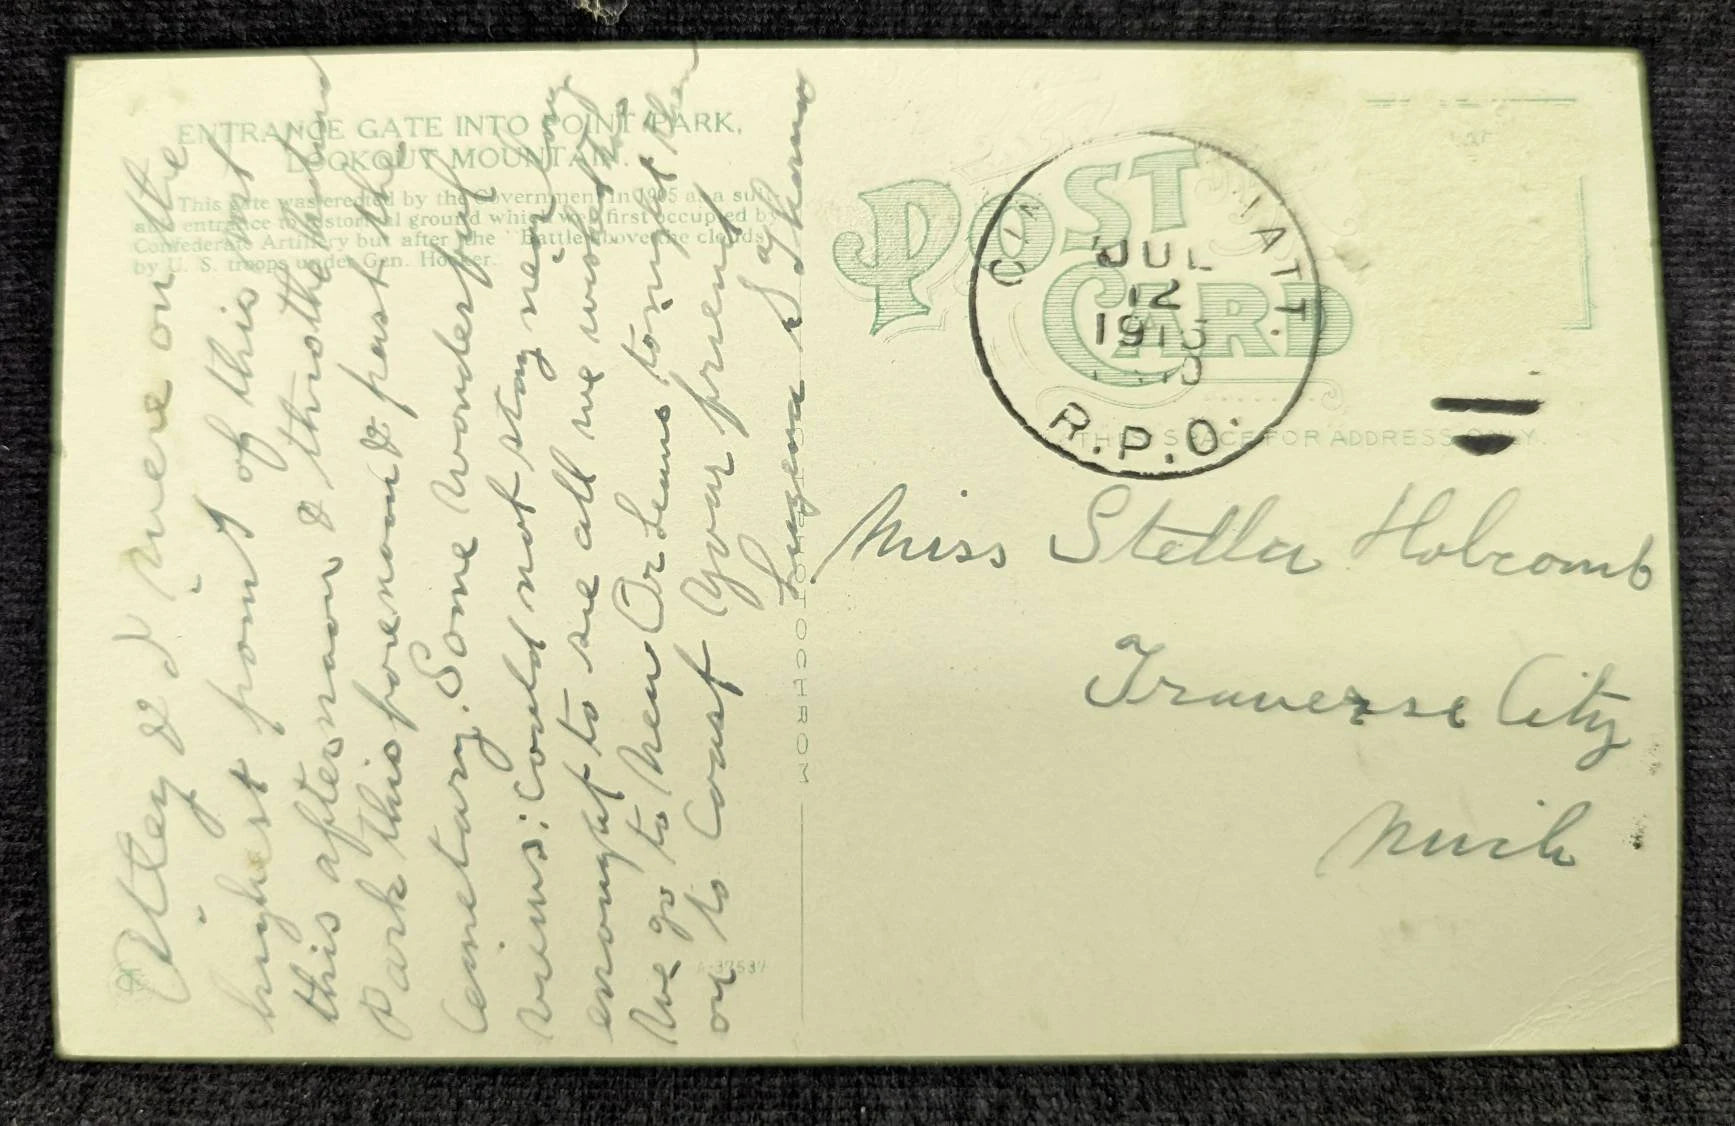 ENTRANCE GATE INTO POINT PARK,
LOOKOUT MOUNTAIN.
This gate was erected by the Government in 1905 as a suit-
able entrance to historical ground which was first occupied by
Confederate Artillery but after the "battle above the clouds"
by U. S. troops under Gen. Hooker.
& I were on the
highest point of this mt
this afternoon & thro the
Park this forenoon & past the
Cemetary. Some Wonderful
views: could not stay near long
enought to see all we wished
We go to New Orleans tonight then
on to Coast Your friend
Thomas
PHOTOCHROM
POST
CARD
CINCINNATI.
JUL
12
1915
R.P.O.
THIS SPACE FOR ADDRESS ONLY.
Miss Stella Holcomb
Traverse City
Mich